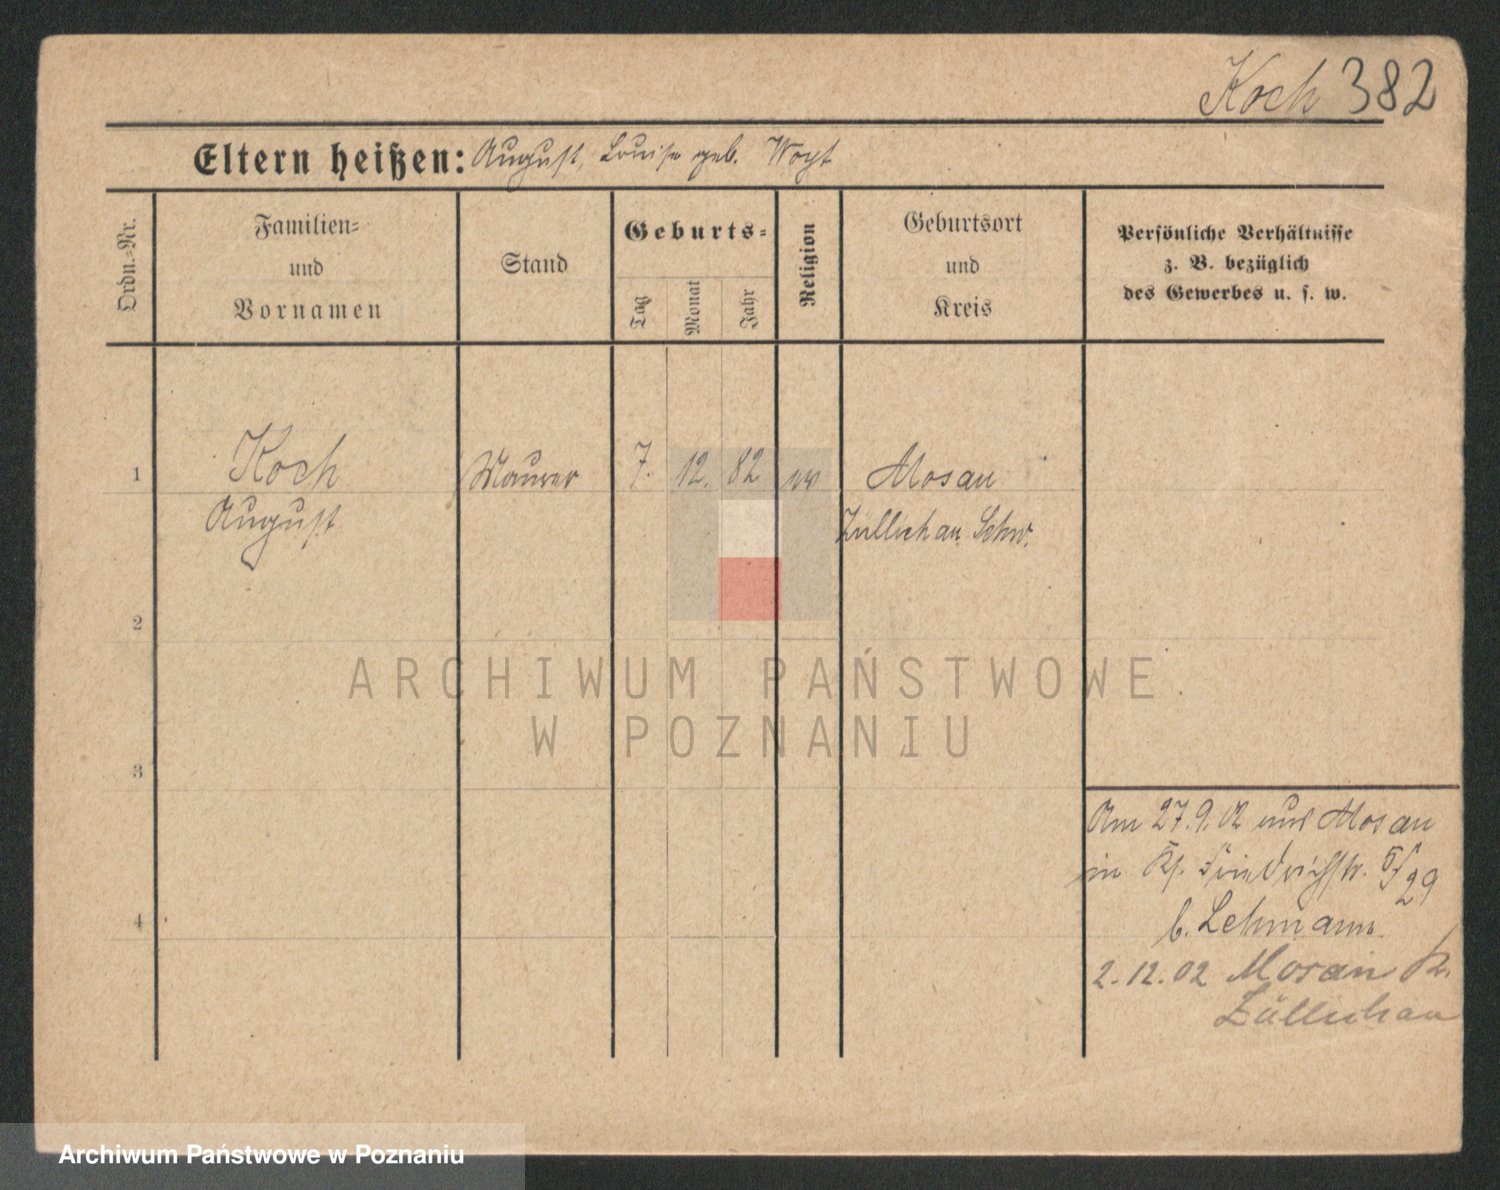 Koch 382
Eltern heißen: August, Louise geb. Woyt
Ordn.-Nr.
Familien-
und
Vornamen
Stand
Geburts-
Tag
Monat
Jahr
Religion
Geburtsort
und
Kreis
Persönliche Verhältnisse
z. B. bezüglich
des Gewerbes u. s. w.
1
Koch
August
Maurer
7. 12. 82
ev
Mosau
Züllichau Schw.
2
3
4
Am 27.9.02 aus Mosau
in Friedrichstr. 29
b. Lehmann
2.12.02 Mosau Kr.
Züllichau
ARCHIWUM PAŃSTWOWE
W POZNANIU
Archiwum Państwowe w Poznaniu